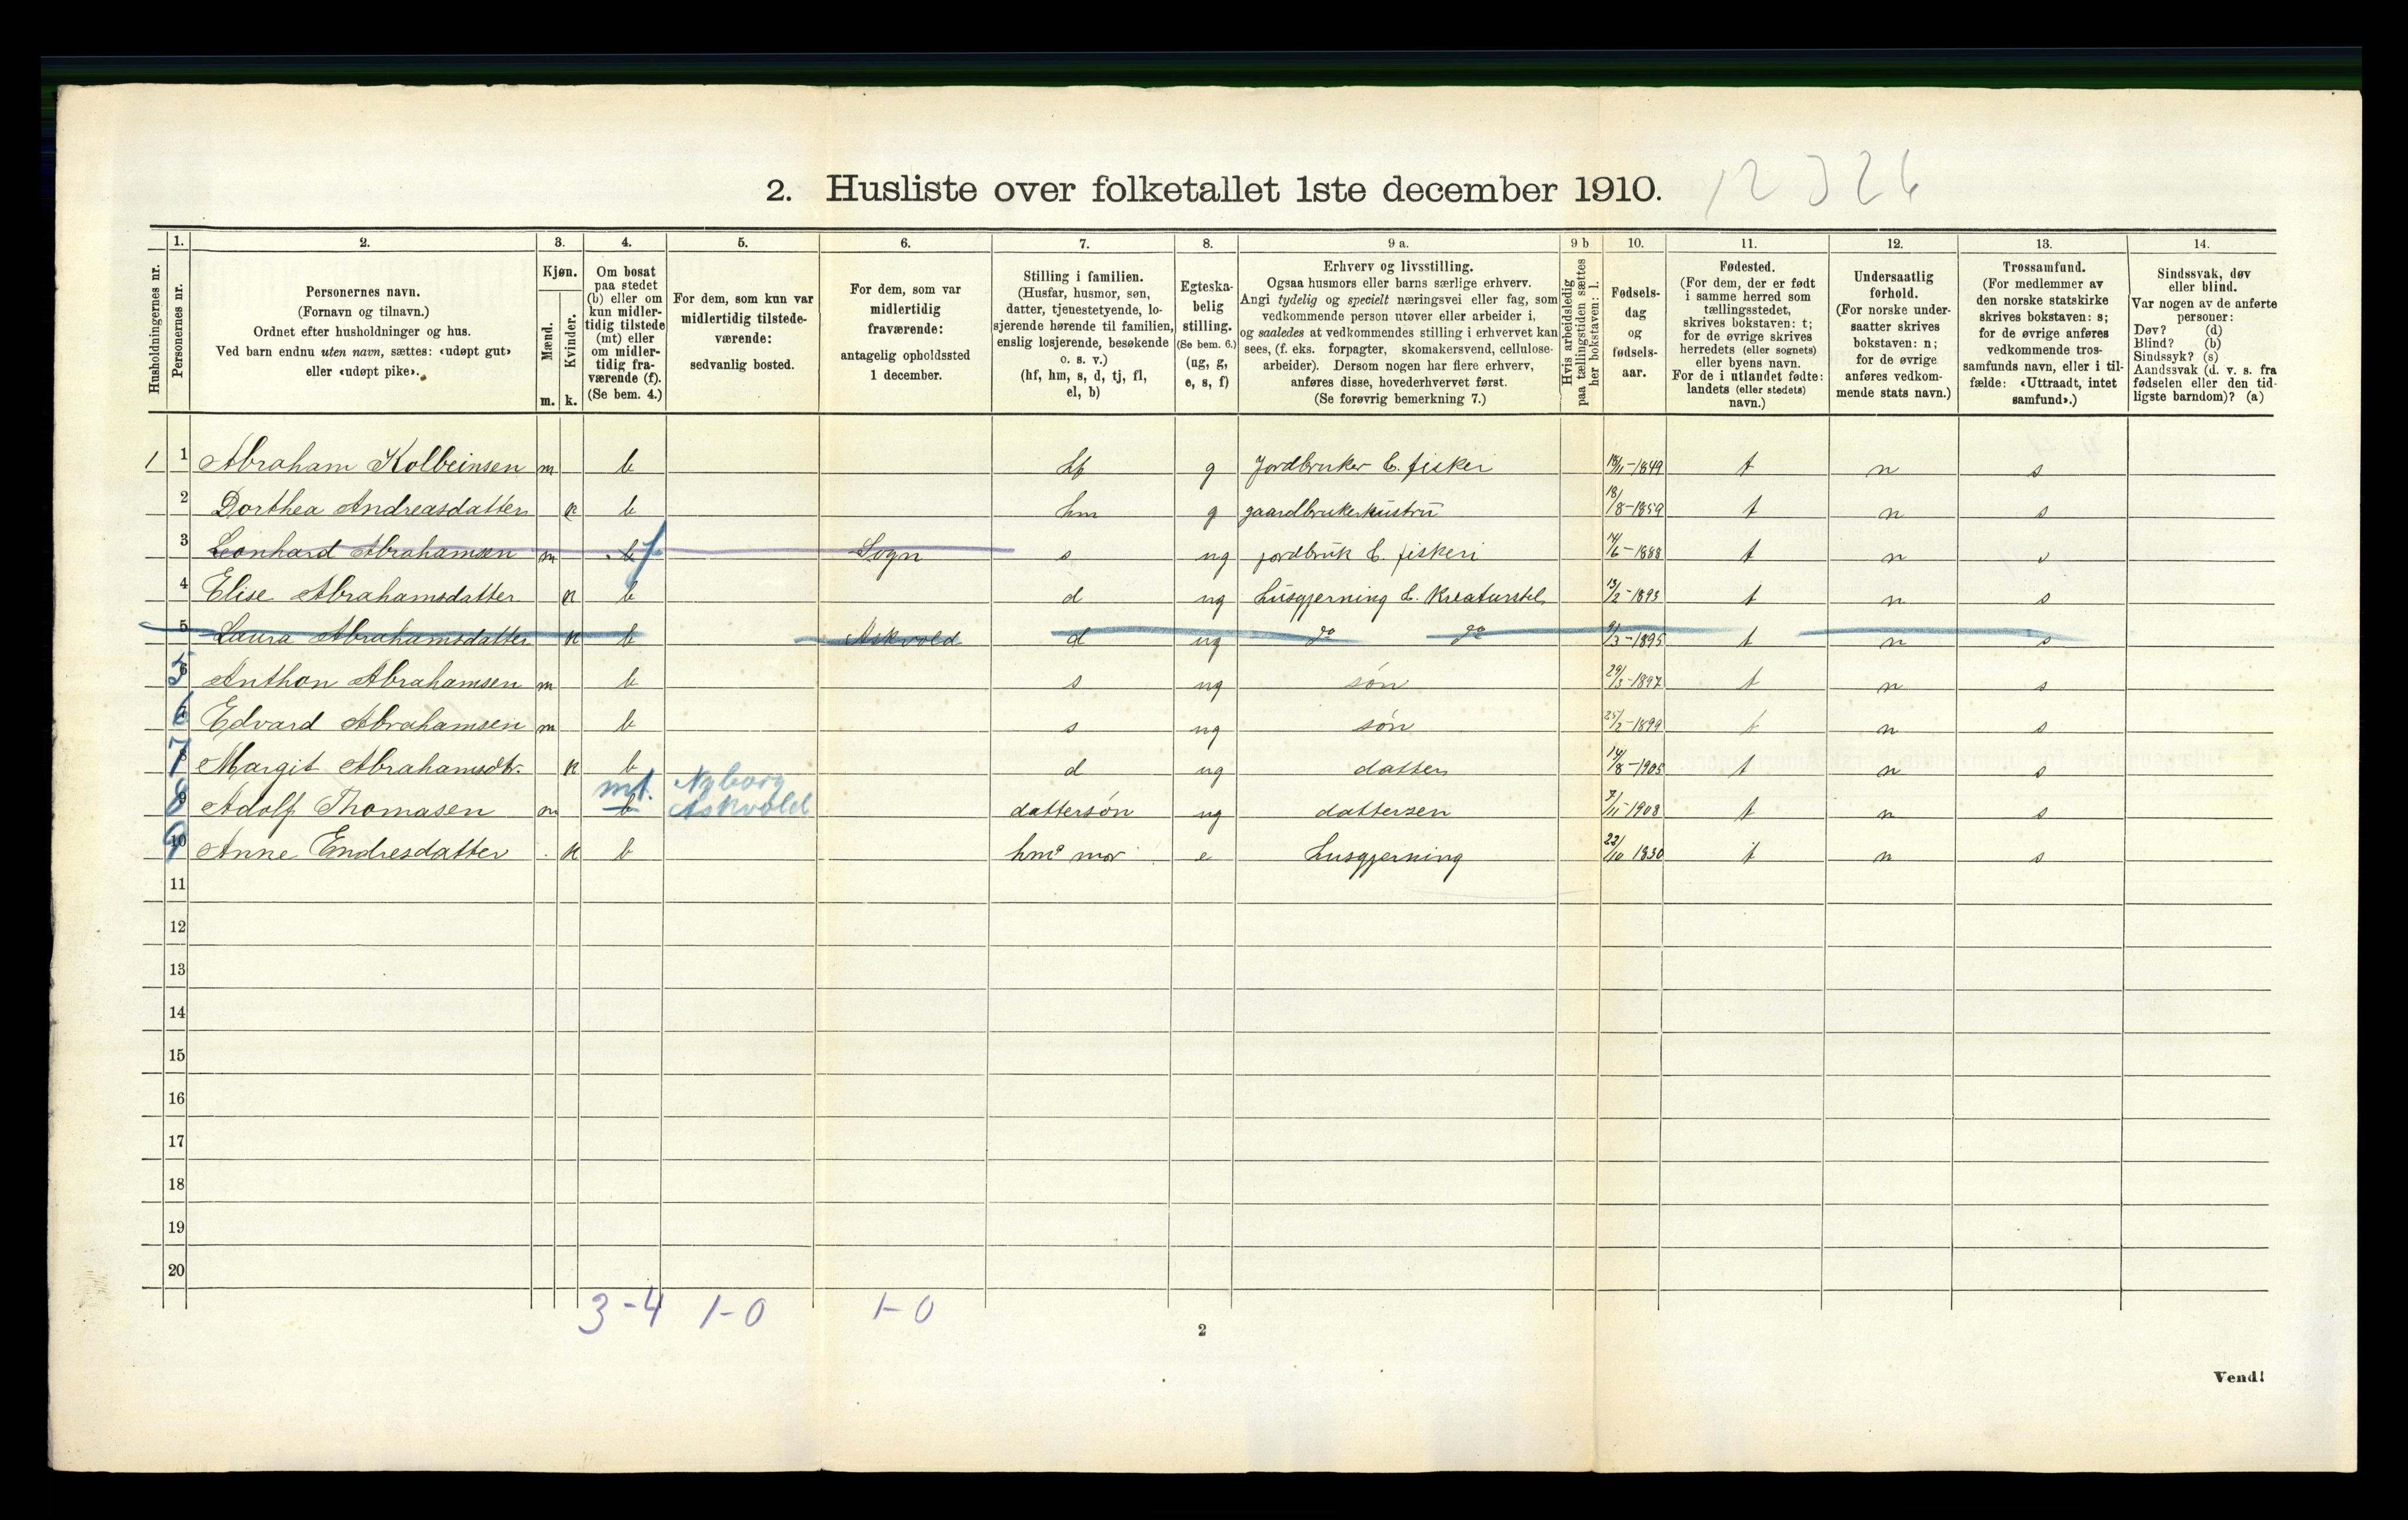 2. Husliste over folketallet 1ste december 1910.
12 326
Husholdningernes nr.
1.
Personernes nr.
2.
Personernes navn.
(Fornavn og tilnavn.)
Ordnet efter husholdninger og hus.
Ved barn endnu uten navn, sættes: «udøpt gut»
eller «udøpt pike».
3.
Kjøn.
Mænd.
Kvinder.
m. k.
4.
Om bosat
paa stedet
(b) eller om
kun midler-
tidig tilstede
(mt) eller
om midler-
tidig fra-
værende (f).
(Se bem. 4.)
5.
For dem, som kun var
midlertidig tilstede-
værende:
sedvanlig bosted.
6.
For dem, som var
midlertidig
fraværende:
antagelig opholdssted
1 december.
7.
Stilling i familien.
(Husfar, husmor, søn,
datter, tjenestetyende, lo-
sjerende hørende til familien,
enslig losjerende, besøkende
o. s. v.)
(hf, hm, s, d, tj, fl,
el, b)
8.
Egteska-
belig
stilling.
(Se bem. 6.)
(ug, g,
e, s, f)
9 a.
Erhverv og livsstilling.
Ogsaa husmors eller barns særlige erhverv.
Angi tydelig og specielt næringsvei eller fag, som
vedkommende person utøver eller arbeider i,
og saaledes at vedkommendes stilling i erhvervet kan
sees, (f. eks. forpagter, skomakersvend, cellulose-
arbeider). Dersom nogen har flere erhverv,
anføres disse, hovederhvervet først.
(Se forøvrig bemerkning 7.)
9 b
Hvis arbeidsledig
paa tællingstiden sættes
her bokstaven: l.
10.
Fødsels-
dag
og
fødsels-
aar.
11.
Fødested.
(For dem, der er født
i samme herred som
tællingsstedet,
skrives bokstaven: t;
for de øvrige skrives
herredets (eller sognets)
eller byens navn.
For de i utlandet fødte:
landets (eller stedets)
navn.)
12.
Undersaatlig
forhold.
(For norske under-
saatter skrives
bokstaven: n;
for de øvrige
anføres vedkom-
mende stats navn.)
13.
Trossamfund.
(For medlemmer av
den norske statskirke
skrives bokstaven: s;
for de øvrige anføres
vedkommende tros-
samfunds navn, eller i til-
fælde: «Uttraadt, intet
samfund».)
14.
Sindssvak, døv
eller blind.
Var nogen av de anførte
personer:
Døv? (d)
Blind? (b)
Sindssyk? (s)
Aandssvak (d. v. s. fra
fødselen eller den tid-
ligste barndom)? (a)
1 1 Abraham Kolbeinsen m b hf g Jordbruker & fisker 18/11-1849 t n s
2 Dorthea Andreasdatter k b hm g gaardbrukerhustru 18/8-1859 t n s
3 Leonhard Abrahamsen m b f Sogn s ug jordbruk & fiskeri 14/6-1888 t n s
4 Elise Abrahamsdatter k b d ug husgjerning & Kreaturstel 13/2-1893 t n s
5 Laura Abrahamsdatter k b Askvold d ug do do 9/3-1895 t n s
5 Anthon Abrahamsen m b s ug søn 29/3-1897 t n s
6 Edvard Abrahamsen m b s ug søn 25/2-1899 t n s
7 Margit Abrahamsdtr. k b d ug datter 14/8-1905 t n s
8 9 Adolf Thomasen m b mt. Nyborg Askvold dattersøn ug dattersen 7/11-1908 t n s
9 10 Anne Endresdatter k b hms mor e husgjerning 23/10 1830 t n s
11
12
13
14
15
16
17
18
19
20
3-4 1-0 1-0
2
Vend!